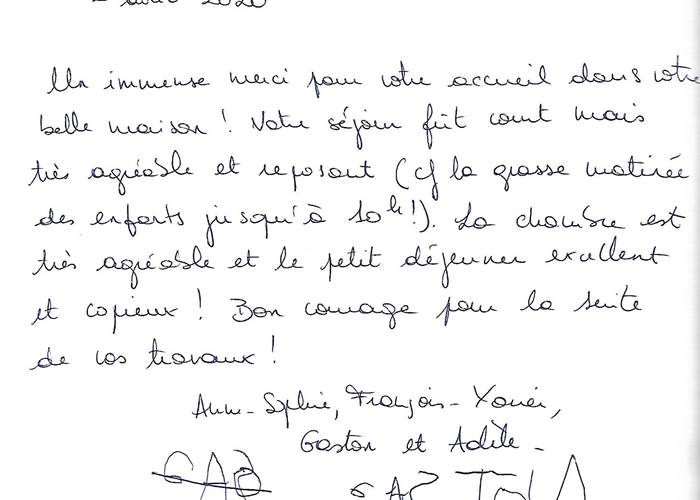 2020
Un immense merci pour votre accueil dans votre
belle maison ! Notre séjour fût court mais
très agréable et reposant (cf la grasse matinée
des enfants jusqu'à 10h !). La chambre est
très agréable et le petit déjeuner excellent
et copieux ! Bon courage pour la suite
de vos travaux !
Anne-Sophie, François-Xavier,
Gaston et Adèle -
GAB